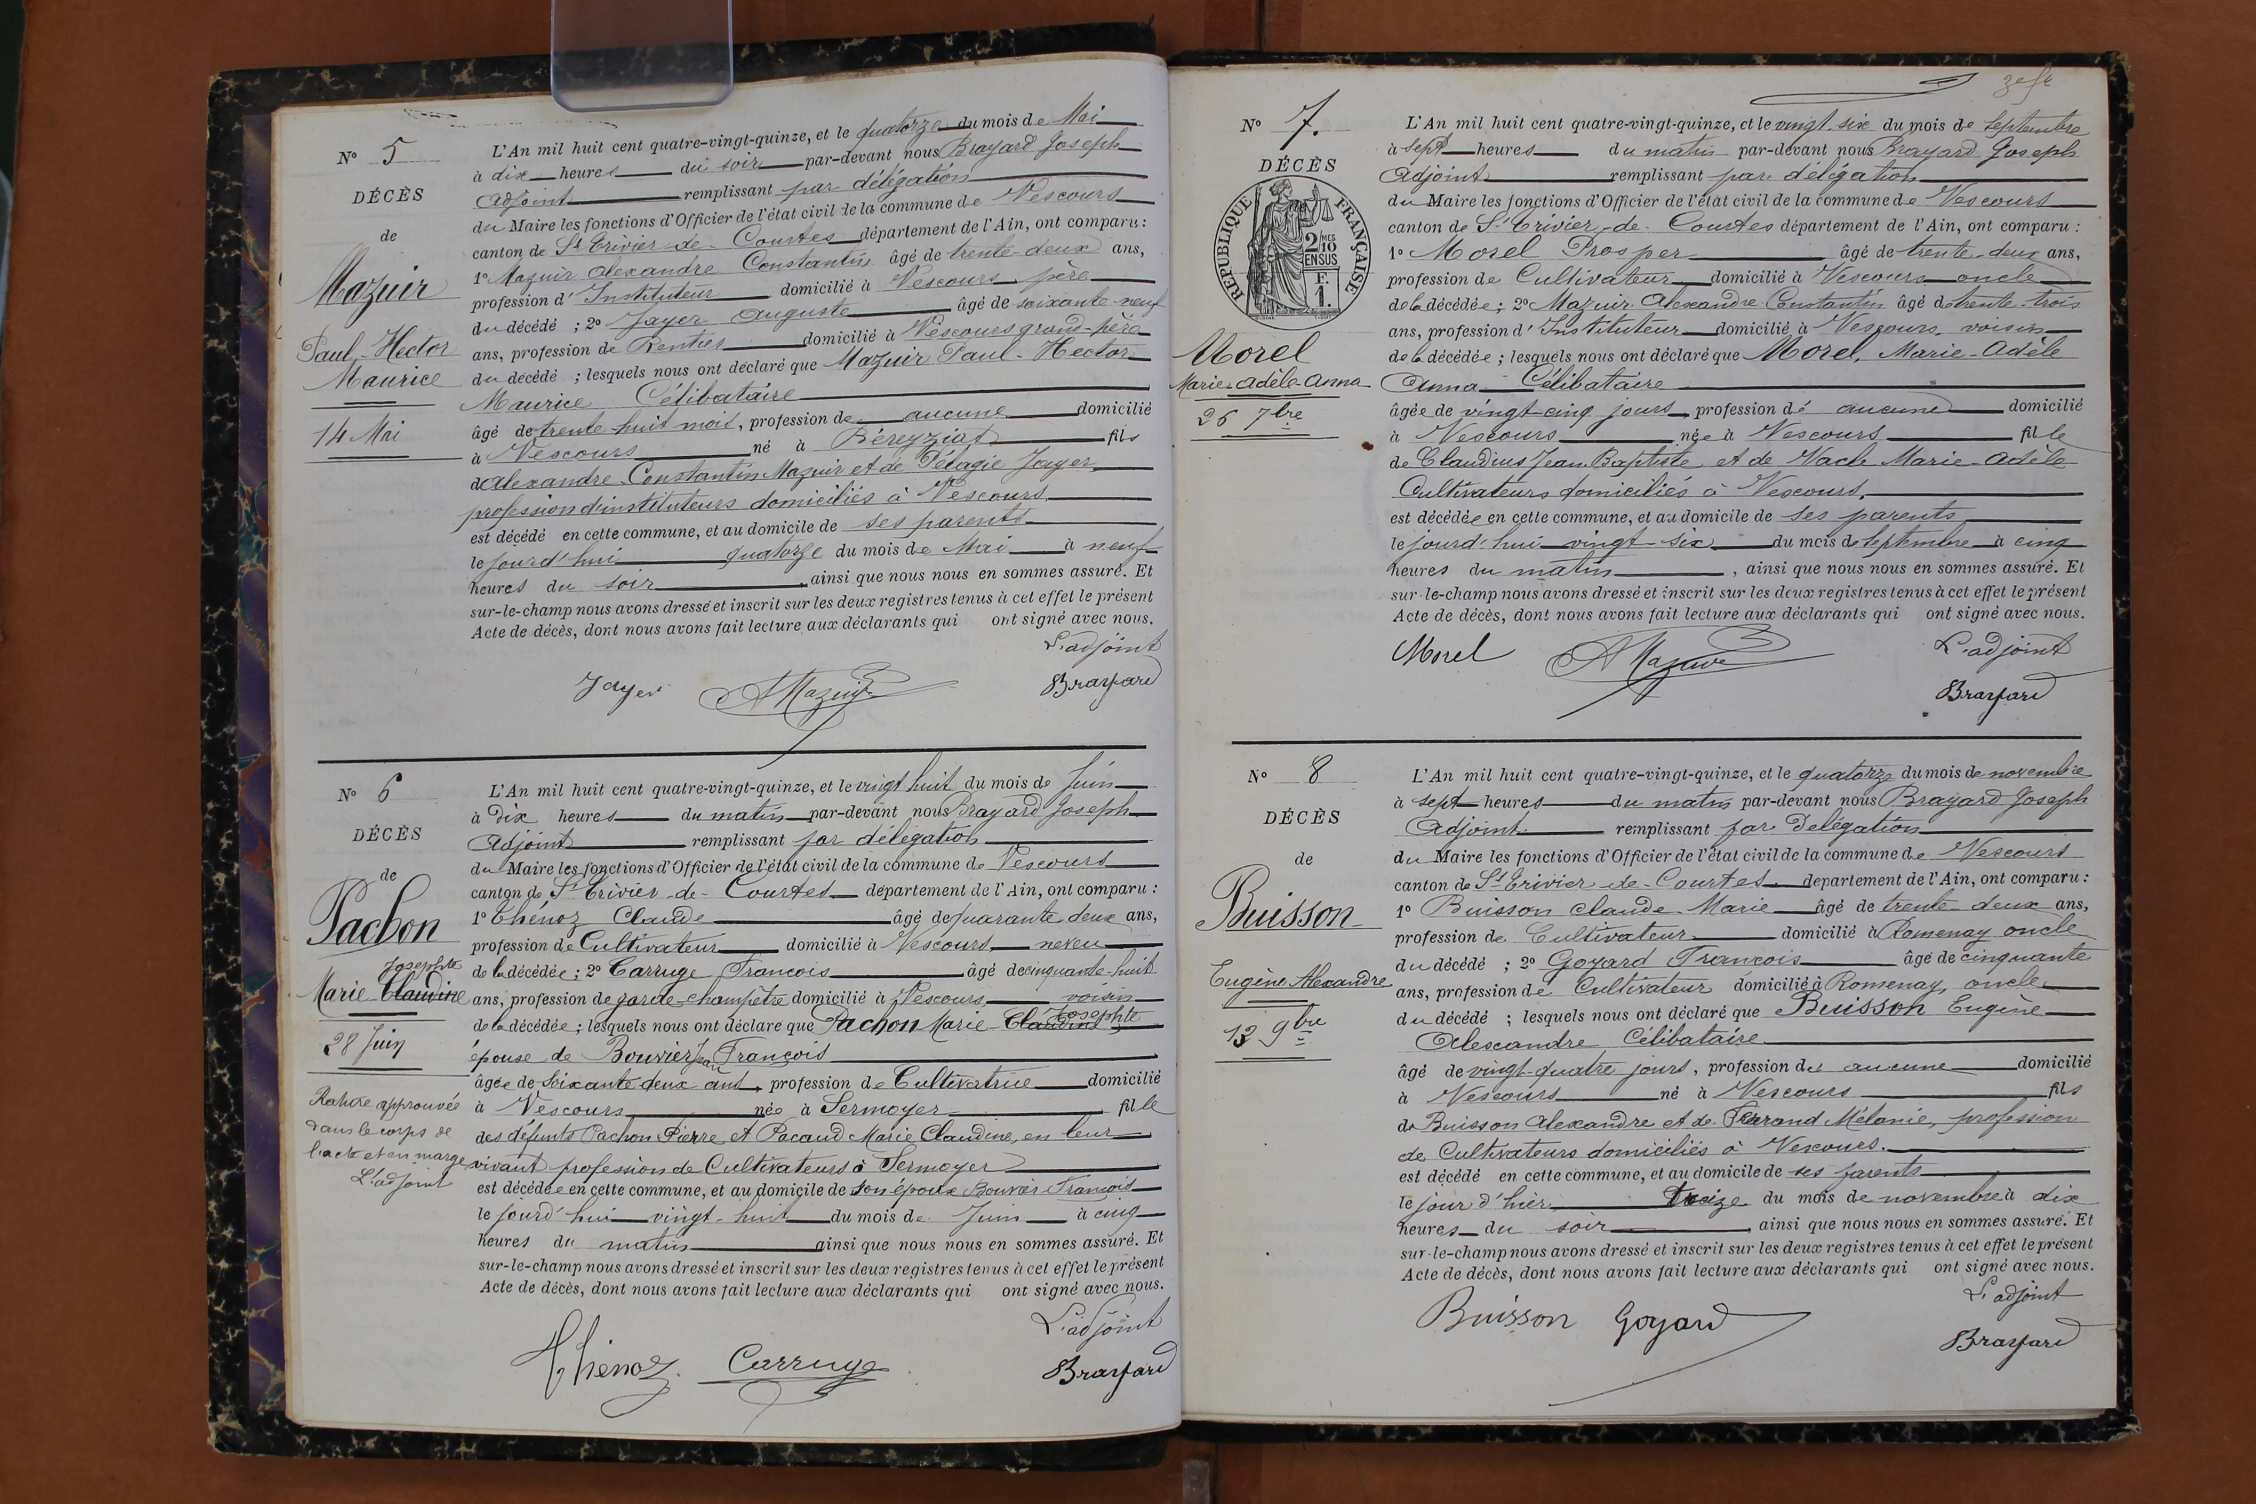 N° 5
DÉCÈS
de
Mazuir
Paul-Hector
Maurice
14 Mai
L'An mil huit cent quatre-vingt-quinze, et le quatorze du mois de Mai
à dix heures du soir par-devant nous Brayard Joseph
adjoint remplissant par délégation
du Maire les fonctions d'Officier de l'état civil de la commune de Vescours
canton de St Trivier-de-Courtes département de l'Ain, ont comparu :
1° Mazuir Alexandre Constantin âgé de trente-deux ans,
profession d'Instituteur domicilié à Vescours père
du décédé ; 2° Jayer Auguste âgé de soixante-neuf
ans, profession de Rentier domicilié à Vescours grand-père
du décédé ; lesquels nous ont déclaré que Mazuir Paul-Hector
Maurice Célibataire
âgé de trente huit mois, profession de aucune domicilié
à Vescours né à Béreyziat fils
d'Alexandre Constantin Mazuir et de Pélagie Jayer
profession d'instituteurs domiciliés à Vescours
est décédé en cette commune, et au domicile de ses parents
le jourd'hui quatorze du mois de Mai à neuf
heures du soir, ainsi que nous nous en sommes assuré. Et
sur-le-champ nous avons dressé et inscrit sur les deux registres tenus à cet effet le présent
Acte de décès, dont nous avons fait lecture aux déclarants qui ont signé avec nous.
L'adjoint
Jayer AMazuir Brayard
N° 6
DÉCÈS
de
Pachon
Josephte
Marie Claudine
28 Juin
Rature approuvée
dans le corps de
l'acte et en marge
L'adjoint
L'An mil huit cent quatre-vingt-quinze, et le vingt huit du mois de Juin
à Dix heures du matin par-devant nous Brayard Joseph
adjoint remplissant par délégation
du Maire les fonctions d'Officier de l'état civil de la commune de Vescours
canton de St Trivier-de-Courtes département de l'Ain, ont comparu :
1° Thénoz Claude âgé de quarante deux ans,
profession de Cultivateur domicilié à Vescours neveu
de la décédée ; 2° Carruge François âgé de cinquante-huit
ans, profession de garde-champêtre domicilié à Vescours voisin
Josephte
de la décédée ; lesquels nous ont déclaré que Pachon Marie Claudine
épouse de Bouvier Jean François
âgée de soixante deux ans, profession de Cultivatrice domicilié
à Vescours née à Sermoyer fille
des défunts Pachon Pierre et Pacaud Marie Claudine, en leur
vivant profession de Cultivateurs à Sermoyer
est décédée en cette commune, et au domicile de son époux Bouvier François
le jourd'hui vingt-huit du mois de Juin à cinq
heures du matin ainsi que nous nous en sommes assuré. Et
sur-le-champ nous avons dressé et inscrit sur les deux registres tenus à cet effet le présent
Acte de décès, dont nous avons fait lecture aux déclarants qui ont signé avec nous.
L'adjoint
Thénoz. Carruge Brayard
N° 7.
DÉCÈS
RÉPUBLIQUE FRANÇAISE
2/10
MES
EN SUS
F.
1.
Morel
Marie-Adèle-Anna
26 7bre
L'An mil huit cent quatre-vingt-quinze, et le vingt-six du mois de septembre
à sept heures du matin par-devant nous Brayard Joseph
Adjoint remplissant par délégation
du Maire les fonctions d'Officier de l'état civil de la commune de Vescours
canton de St Trivier-de-Courtes département de l'Ain, ont comparu :
1° Morel Prosper âgé de trente-deux ans,
profession de Cultivateur domicilié à Vescours oncle
de la décédée ; 2° Mazuir Alexandre Constantin âgé de trente-trois
ans, profession d'Instituteur domicilié à Vescours voisin
de la décédée ; lesquels nous ont déclaré que Morel, Marie-Adèle
Anna Célibataire
âgée de vingt-cinq jours, profession de aucune domicilié
à Vescours née à Vescours fille
de Claudius Jean Baptiste et de Vach Marie-Adèle
Cultivateurs domiciliés à Vescours.
est décédée en cette commune, et au domicile de ses parents
le jourd'hui vingt-six du mois de septembre à cinq
heures du matin, ainsi que nous nous en sommes assuré. Et
sur-le-champ nous avons dressé et inscrit sur les deux registres tenus à cet effet le présent
Acte de décès, dont nous avons fait lecture aux déclarants qui ont signé avec nous.
Morel AMazuir L'adjoint
Brayard
N° 8
DÉCÈS
de
Buisson
Eugène Alexandre
13 9bre
L'An mil huit cent quatre-vingt-quinze, et le quatorze du mois de novembre
à sept heures du matin par-devant nous Brayard Joseph
Adjoint remplissant par Delégation
du Maire les fonctions d'Officier de l'état civil de la commune de Vescours
canton de St Trivier-de-Courtes departement de l'Ain, ont comparu :
1° Buisson Claude Marie âgé de trente-deux ans,
profession de Cultivateur domicilié à Romenay oncle
du décédé ; 2° Goyard François âgé de cinquante
ans, profession de Cultivateur domicilié à Romenay, oncle
du décédé ; lesquels nous ont déclaré que Buisson Eugène
Alexandre Célibataire
âgé de vingt-quatre jours, profession de aucune domicilié
à Vescours né à Vescours fils
de Buisson Alexandre et de Ferrand Mélanie, profession
de Cultivateurs domiciliés à Vescours.
est décédé en cette commune, et au domicile de ses parents
le jour d'hier treize du mois de novembre à dix
heures du soir, ainsi que nous nous en sommes assuré. Et
sur-le-champ nous avons dressé et inscrit sur les deux registres tenus à cet effet le présent
Acte de décès, dont nous avons fait lecture aux déclarants qui ont signé avec nous.
L'adjoint
Buisson Goyard Brayard